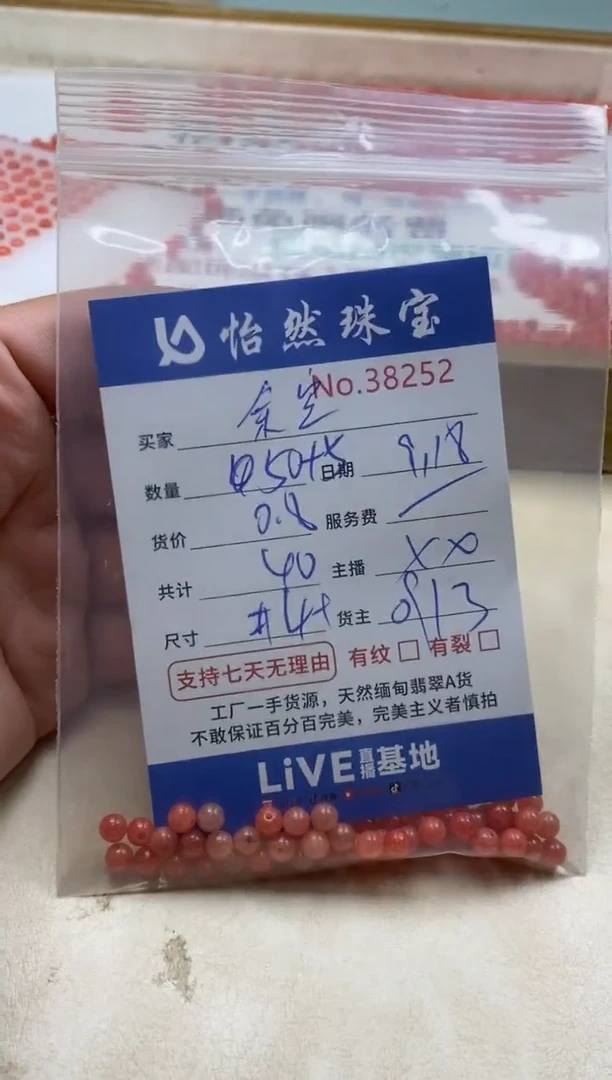 怡然珠宝
No.38252
买家 余生
数量 50+5 日期 9.18
货价 0.8 服务费
共计 40 主播 XX
尺寸 货主 013
支持七天无理由 有纹 有裂
工厂一手货源，天然缅甸翡翠A货
不敢保证百分百完美，完美主义者慎拍
LiVE直播基地